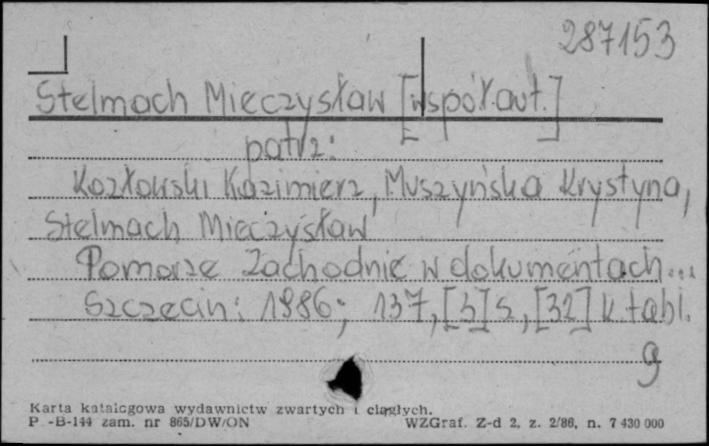 287153
Stelmach Mieczysław [współaut.]
patrz:
Kozłowski Kazimierz, Muszyńska Krystyna,
Stelmach Mieczysław
Pomorze Zachodnie w dokumentach...
Szczecin: 1986; 137, [3] s, [32] k. tabl.
g
Karta katalogowa wydawnictw zwartych i ciągłych.
P.-B-144 zam. nr 865/DW/ON WZGraf. Z-d 2, z. 2/86, n. 7 430 000